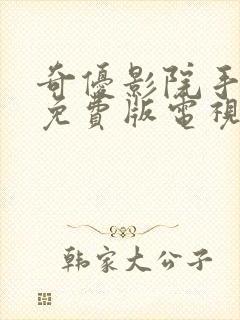 奇優影院手
免費版電視
韩家大公子